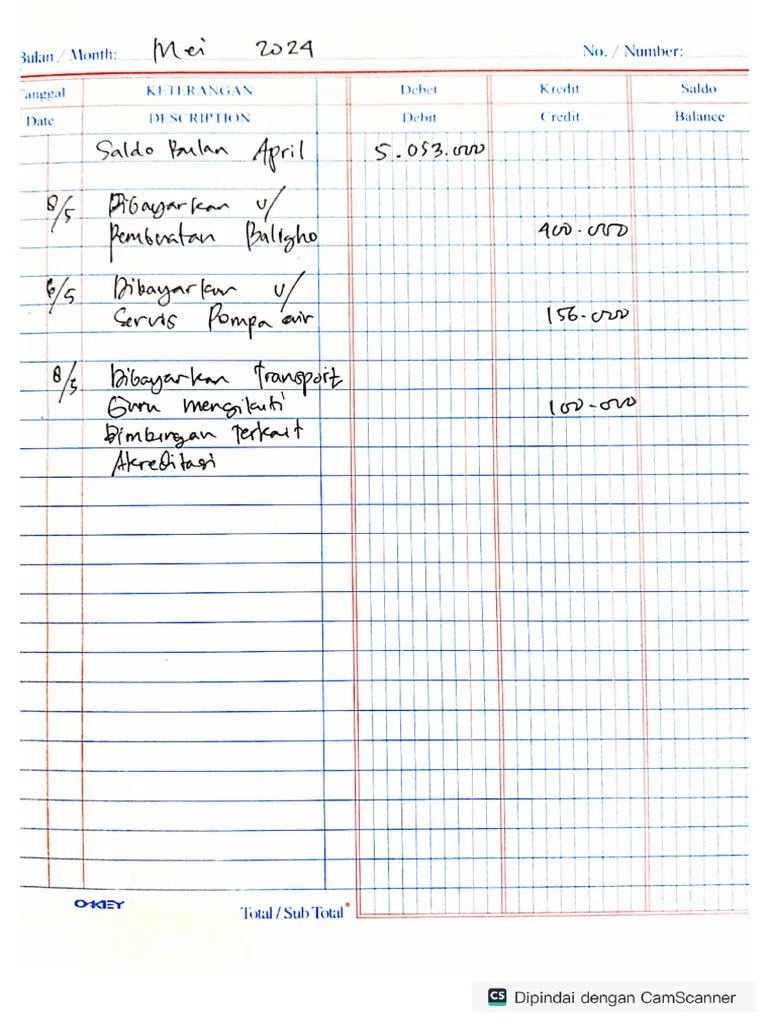 Bulan / Month: Mei 2024 No. / Number:
Tanggal KETERANGAN Debet Kredit Saldo
Date DESCRIPTION Debit Credit Balance
Saldo Bulan April 5.053.000
8/5 Dibayarkan u/
Pembuatan Baligho 400.000
6/5 Dibayarkan u/
Servis Pompa air 156.000
8/5 Dibayarkan Transport
Guru mengikuti 100.000
Bimbingan Terkait
Akreditasi
OKEY Total / Sub Total
CS Dipindai dengan CamScanner